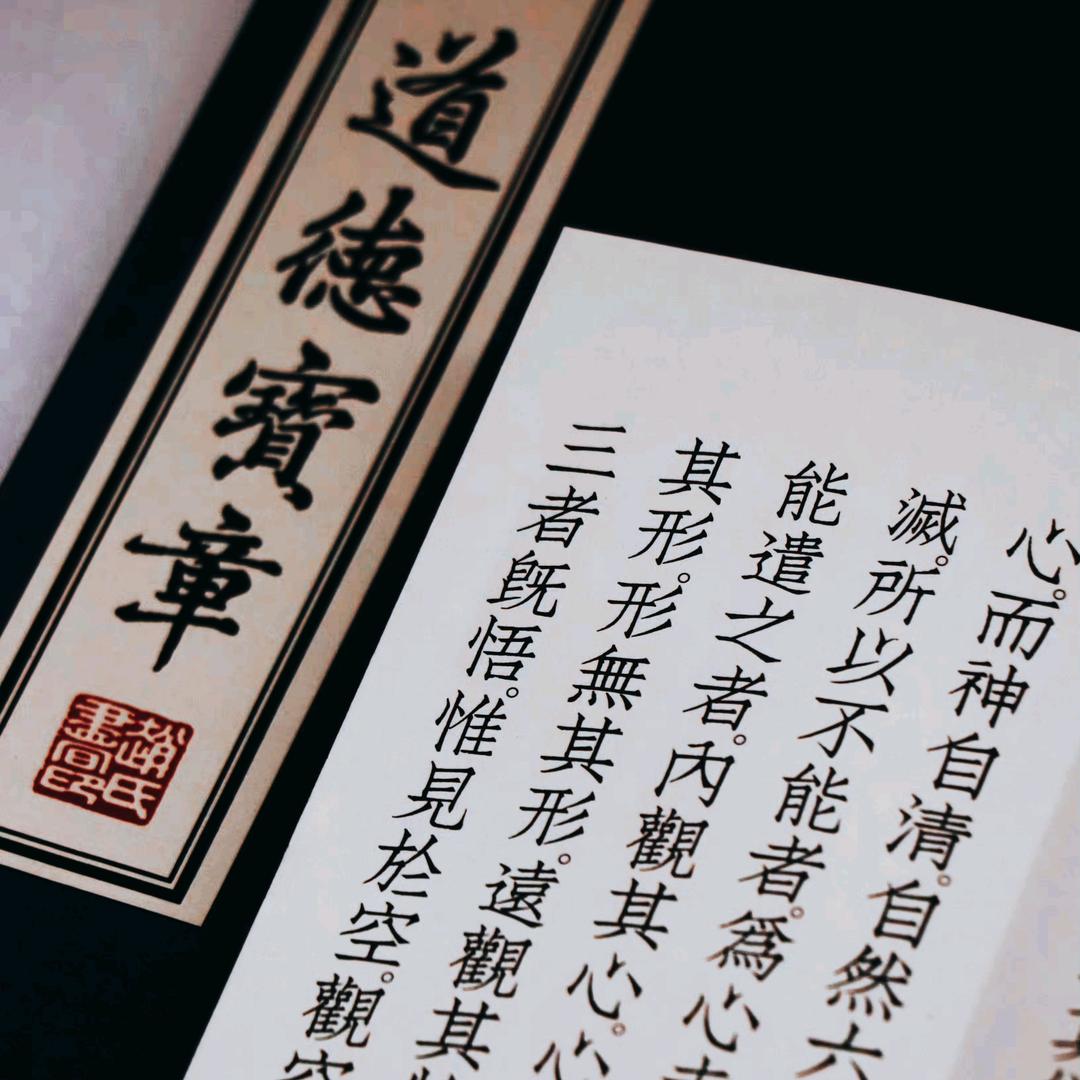 道德寶章
心。而神自清。自然六
滅。所以不能者。爲心
能遣之者。內觀其心。心
其形。形無其形。遠觀其
三者既悟。惟見於空。觀空